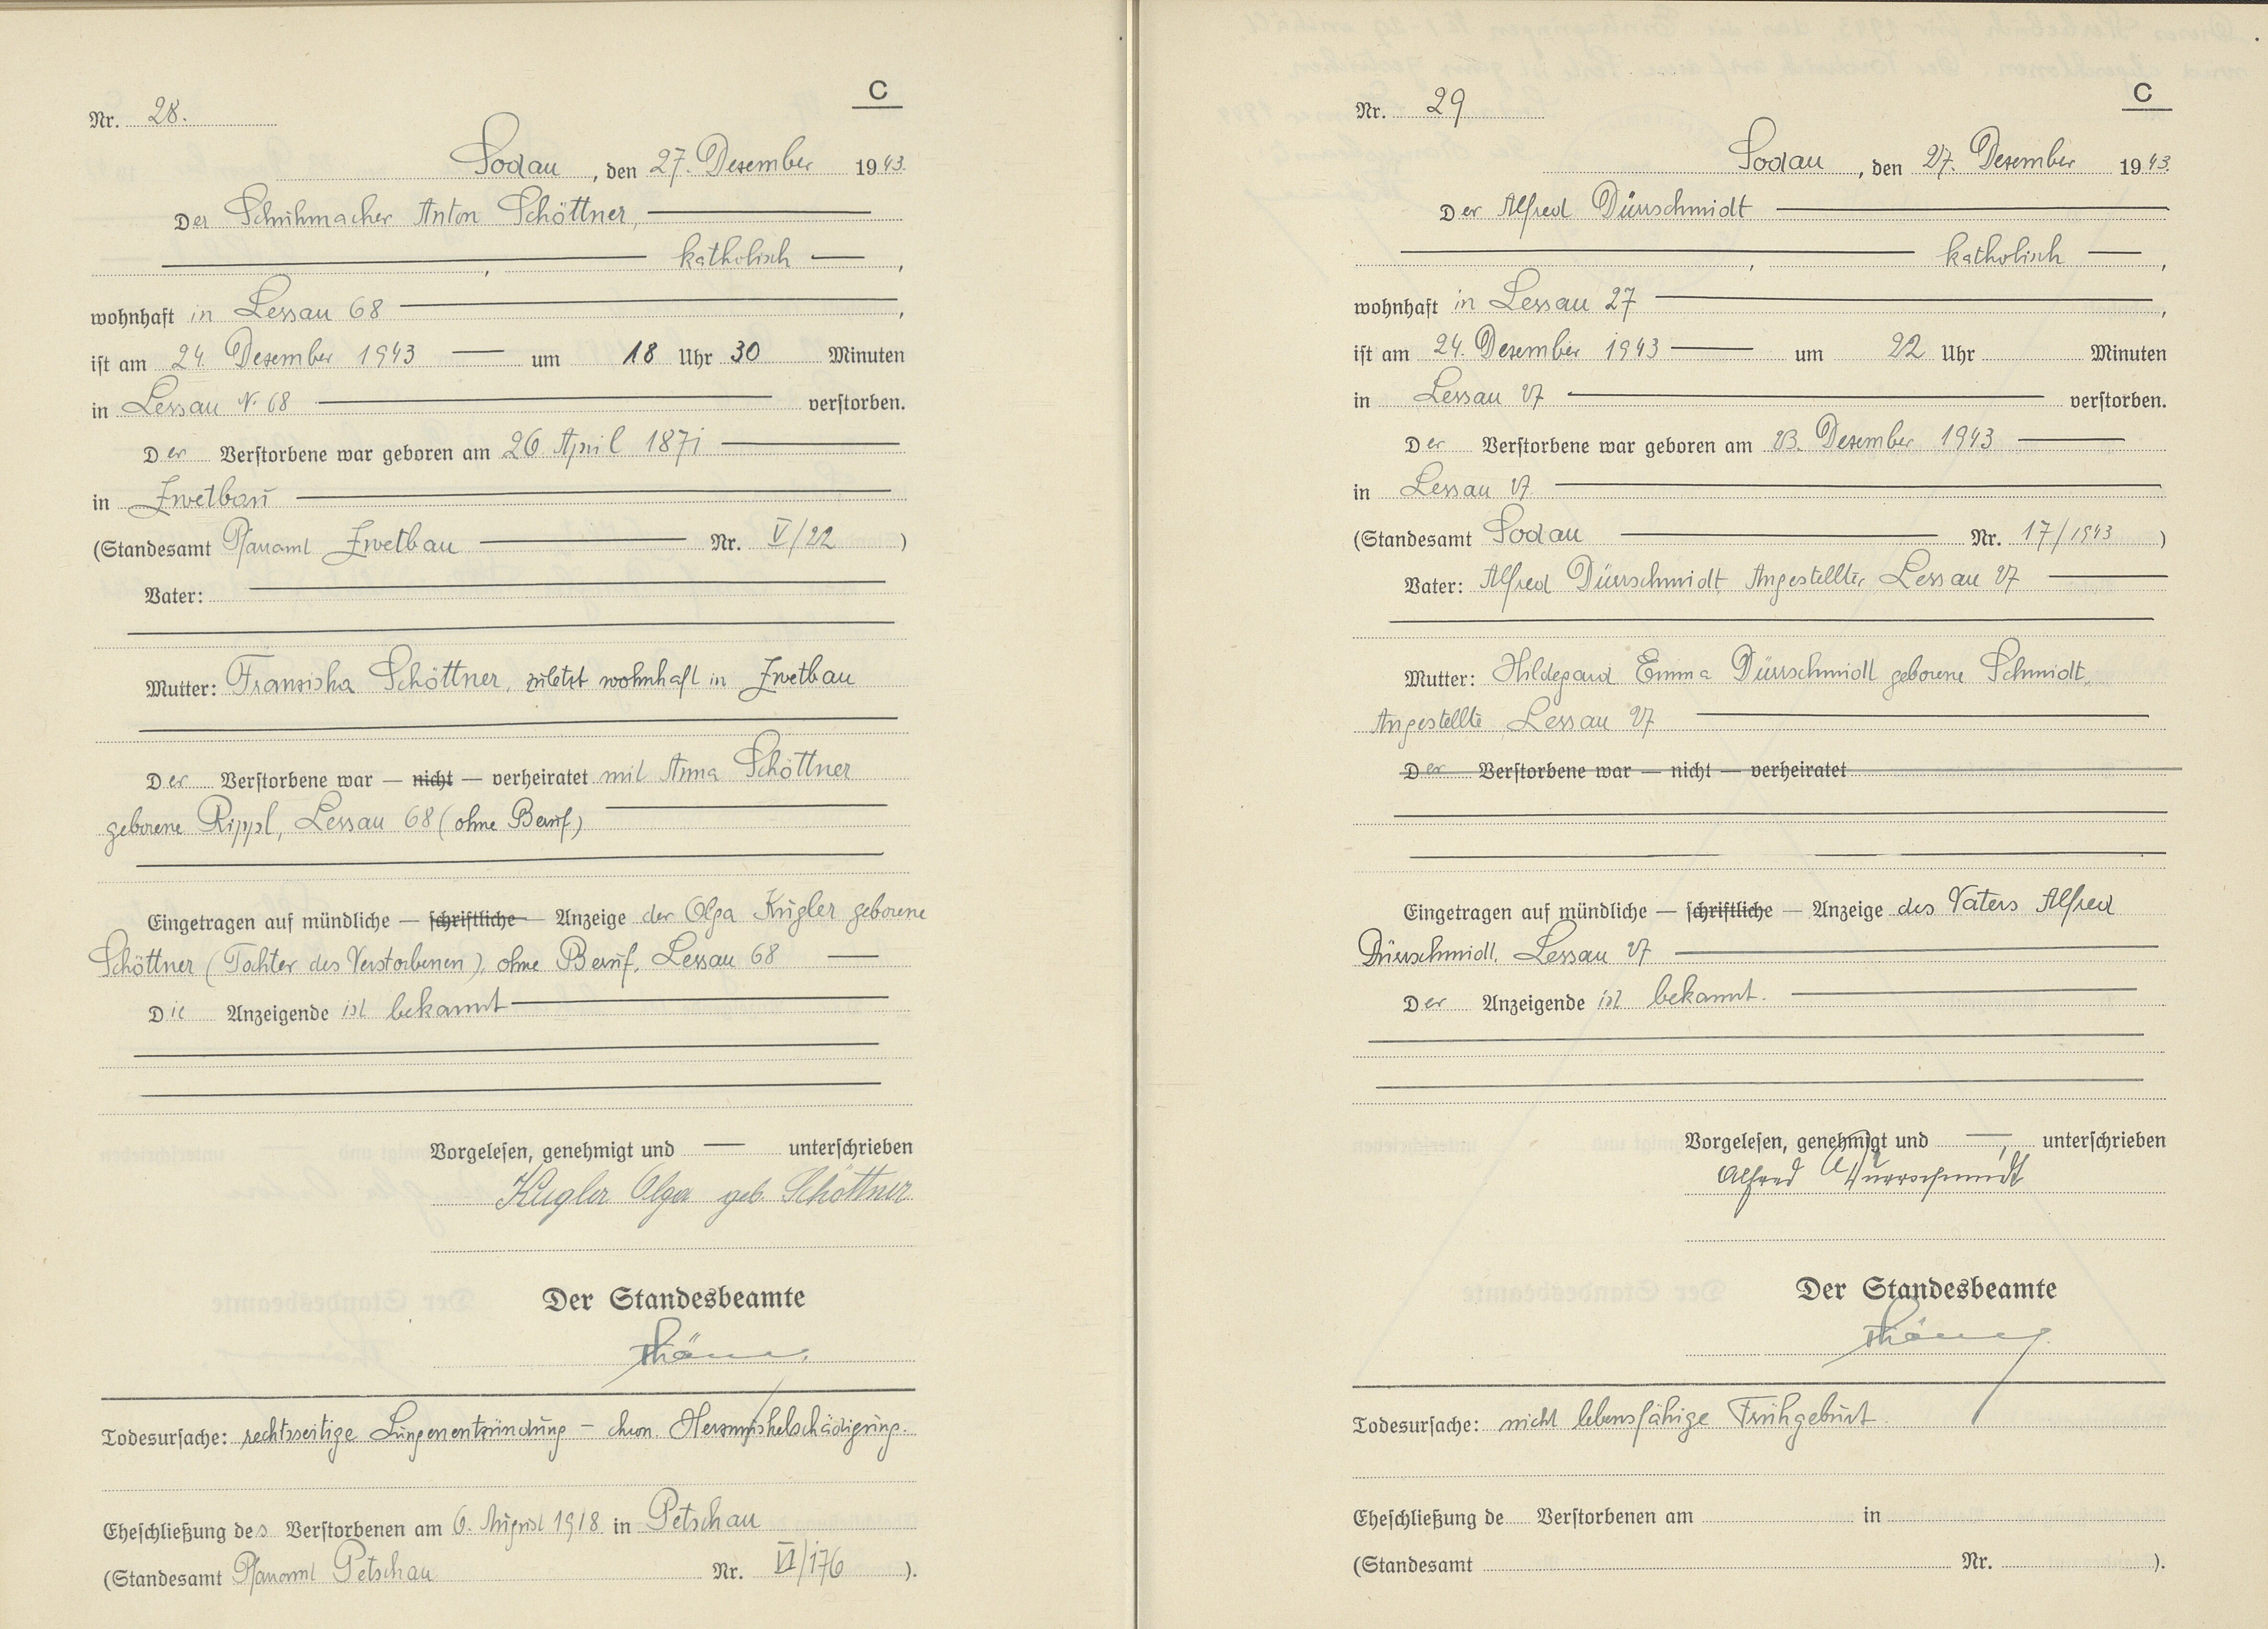 C
Nr. 28.
Sodau, den 27. Dezember 1943.
Der Schuhmacher Anton Schöttner,
, katholisch ,
wohnhaft in Lessau 68 ,
ist am 24. Dezember 1943 um 18 Uhr 30 Minuten
in Lessau N. 68 verstorben.
Der Verstorbene war geboren am 26 April 1871
in Zwetbau
(Standesamt Pfarramt Zwetbau Nr. V/22 )
Vater:
Mutter: Franziska Schöttner, zuletzt wohnhaft in Zwetbau
Der Verstorbene war — nicht — verheiratet mit Anna Schöttner
geborene Rippl, Lessau 68 (ohne Beruf)
Eingetragen auf mündliche — schriftliche — Anzeige der Olga Kugler geborene
Schöttner (Tochter des Verstorbenen), ohne Beruf, Lessau 68
Die Anzeigende ist bekannt
Vorgelesen, genehmigt und — unterschrieben
Kugler Olga geb. Schöttner
Der Standesbeamte
Todesursache: rechtsseitige Lungenentzündung – chron. Herzmuskelschädigung.
Eheschließung des Verstorbenen am 6. August 1918 in Petschau
(Standesamt Pfarraml Petschau Nr. VI/176 ).
C
Nr. 29
Sodau, den 27. Dezember 1943.
Der Alfred Dürrschmidt
, katholisch ,
wohnhaft in Lessau 27 ,
ist am 24. Dezember 1943 um 22 Uhr Minuten
in Lessau 27 verstorben.
Der Verstorbene war geboren am 23. Dezember 1943
in Lessau 27.
(Standesamt Sodau Nr. 17/1943 )
Vater: Alfred Dürrschmidt, Angestellter, Lessau 27
Mutter: Hildegard Emma Dürrschmidt geborene Schmidt,
Angestellte Lessau 27
Der Verstorbene war — nicht — verheiratet
Eingetragen auf mündliche — schriftliche — Anzeige des Vaters Alfred
Dürrschmidt, Lessau 27
Der Anzeigende ist bekannt.
Vorgelesen, genehmigt und —, unterschrieben
Alfred Dürrschmidt
Der Standesbeamte
Todesursache: nicht lebensfähige Frühgeburt
Eheschließung de Verstorbenen am in
(Standesamt Nr. ).